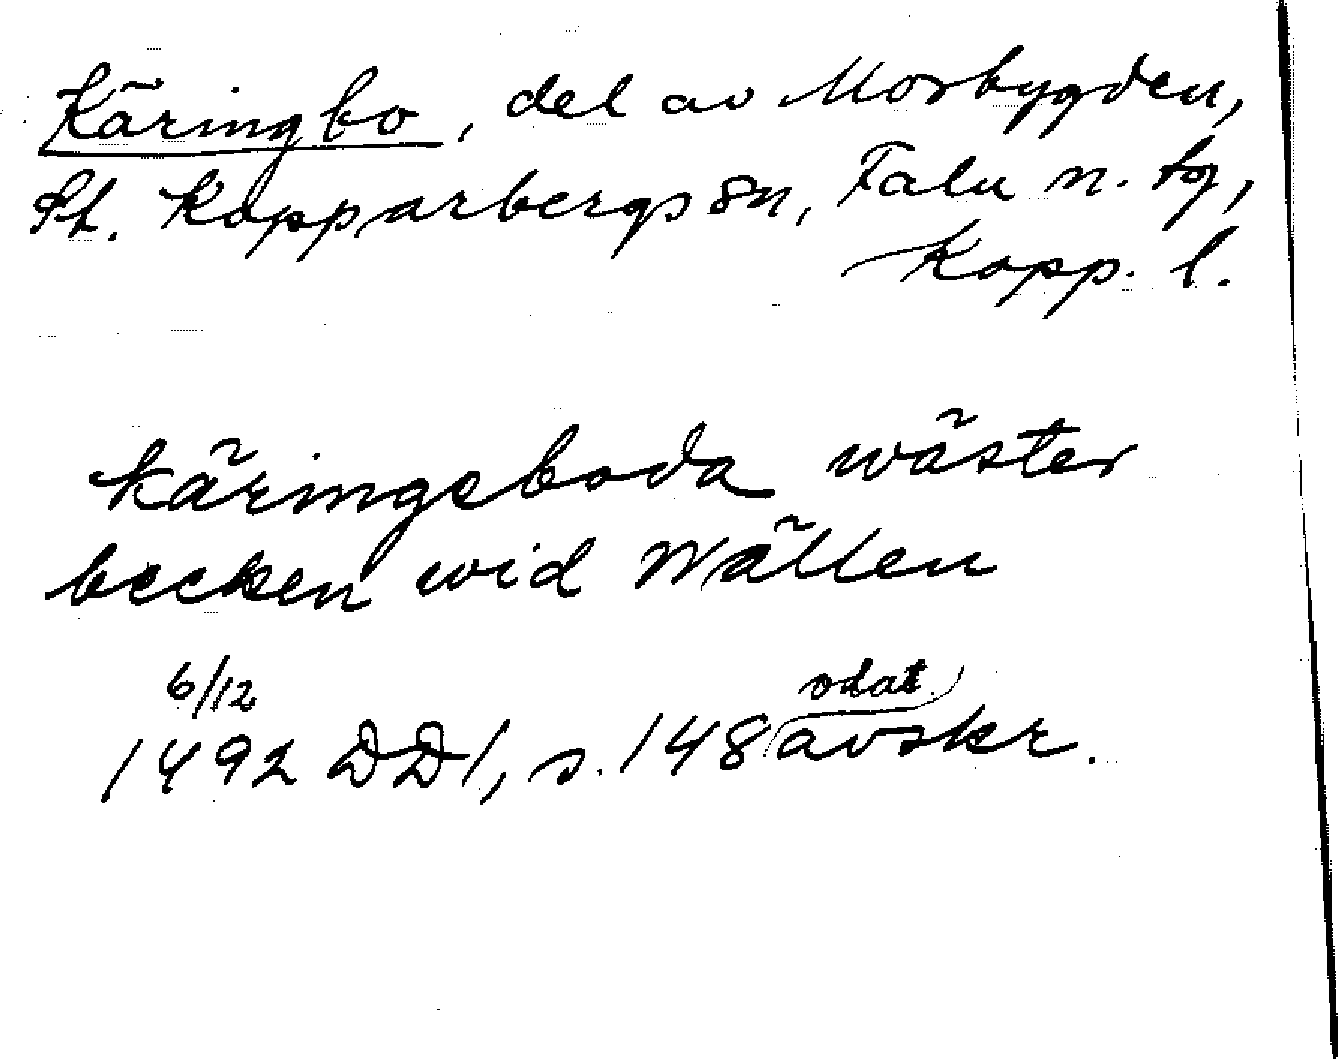 Käringbo, del av Morbygden,
St. Kopparbergs sn, Falu n. tg,
Kopp. l.
Käringeboda wäster
becken wid Wällen
6/12
odat.
1492 DD1, s. 148 avskr.